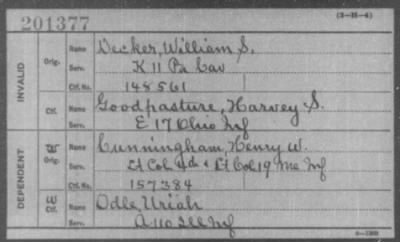 201377
(3—35—4)
INVALID
Orig. Name Decker, William S.
Serv. K 11 Pa Cav
Ctf. No. 148561
Ctf. Name Goodpasture, Harvey S.
Serv. E 17 Ohio Inf
DEPENDENT
W Orig. Name Cunningham, Henry W.
Serv. Lt Col & Lt Col 19 Me Inf
Ctf. No. 157384
W Ctf. Name Odle, Uriah
Serv. A 110 Ill Inf